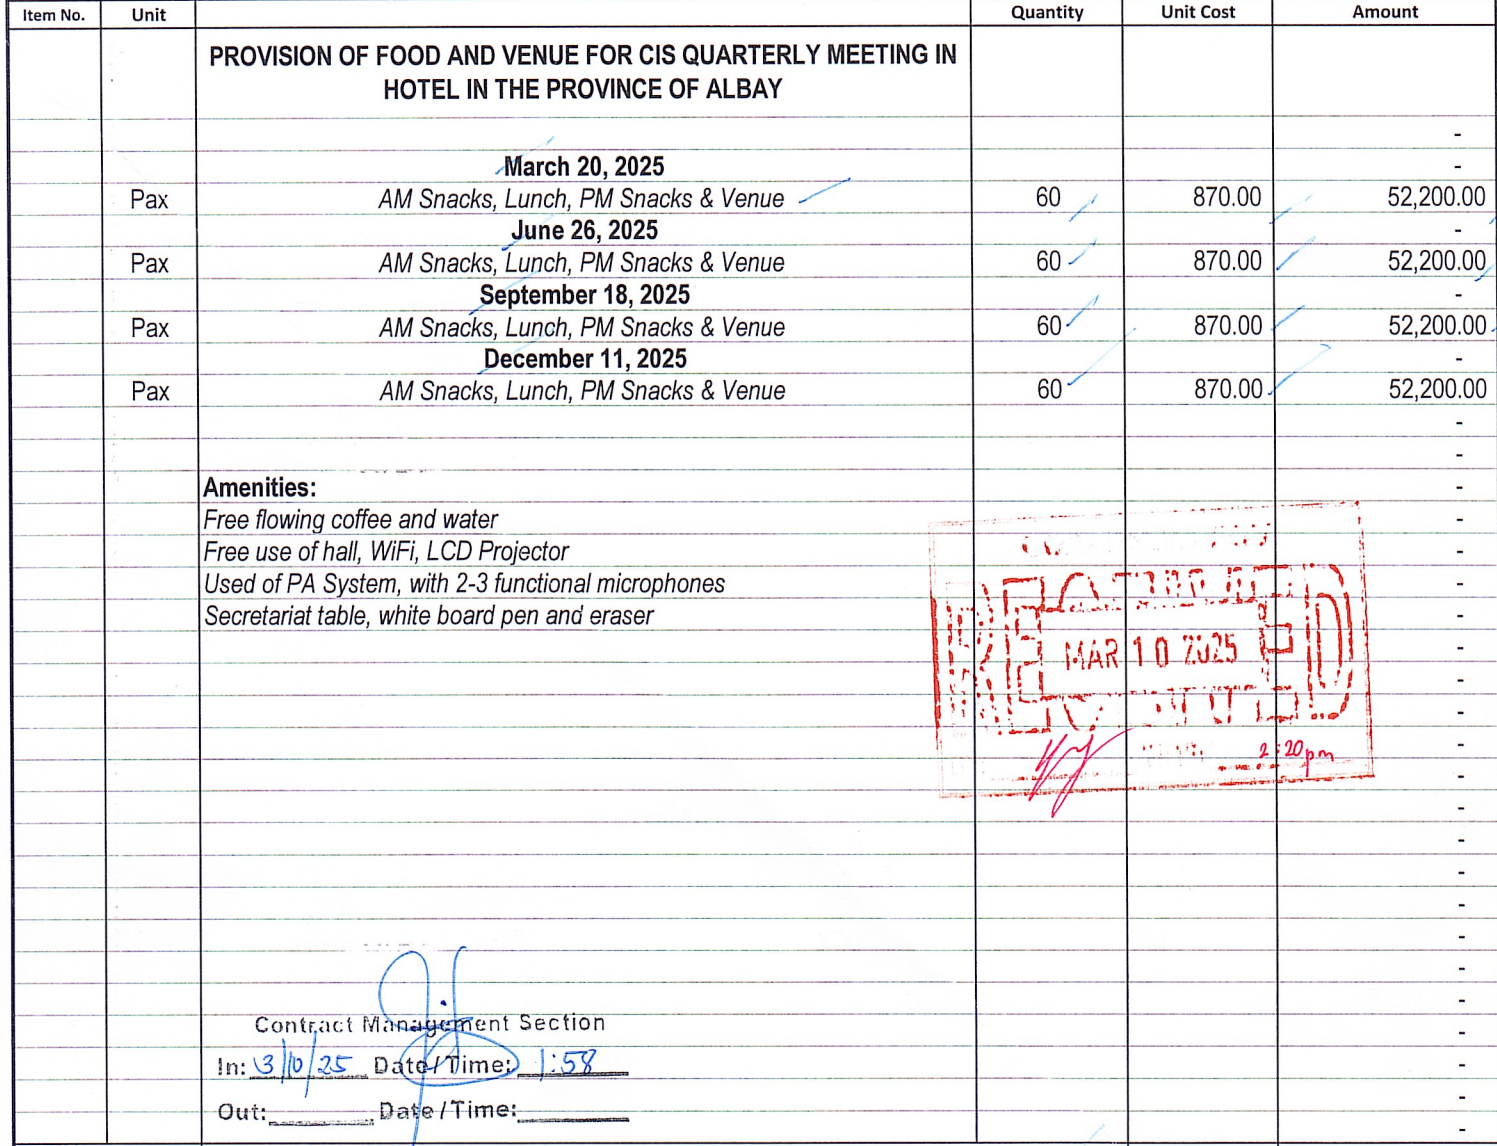 Item No. Unit Quantity Unit Cost Amount
PROVISION OF FOOD AND VENUE FOR CIS QUARTERLY MEETING IN
HOTEL IN THE PROVINCE OF ALBAY
-
March 20, 2025 -
Pax AM Snacks, Lunch, PM Snacks & Venue 60 870.00 52,200.00
June 26, 2025 -
Pax AM Snacks, Lunch, PM Snacks & Venue 60 870.00 52,200.00
September 18, 2025 -
Pax AM Snacks, Lunch, PM Snacks & Venue 60 870.00 52,200.00
December 11, 2025 -
Pax AM Snacks, Lunch, PM Snacks & Venue 60 870.00 52,200.00
-
-
Amenities: -
Free flowing coffee and water -
Free use of hall, WiFi, LCD Projector -
Used of PA System, with 2-3 functional microphones -
Secretariat table, white board pen and eraser -
RECEIVED
MAR 10 2025
2:20pm
Contract Management Section
In: 3/10/25 Date/Time: 1:58
Out: Date/Time: